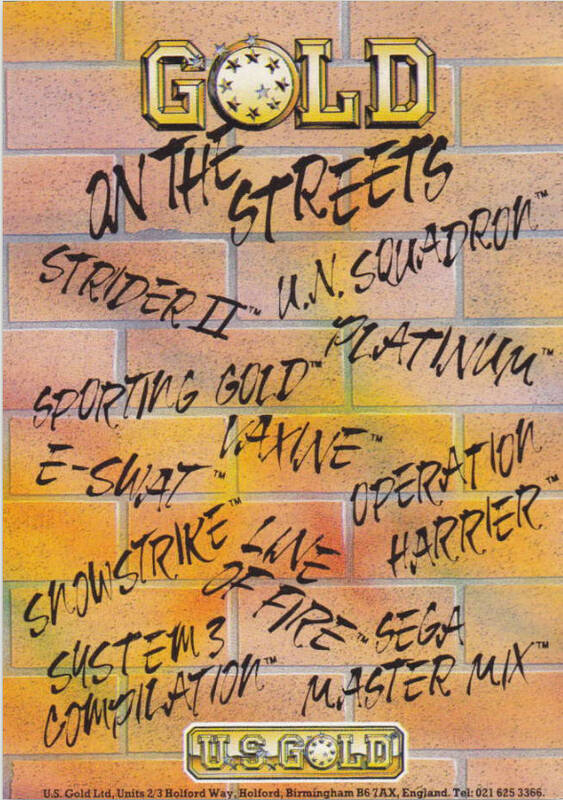 GOLD
ON THE
STREETS
STRIDER II™
U.N. SQUADRON™
PLATINUM™
SPORTING GOLD™
VAXINE™
E-SWAT™
OPERATION
HARRIER™
SNOWSTRIKE™
LINE
OF FIRE™
SYSTEM 3
COMPILATION™
SEGA
MASTER MIX™
U.S. GOLD
U.S. Gold Ltd, Units 2/3 Holford Way, Holford, Birmingham B6 7AX, England. Tel: 021 625 3366.